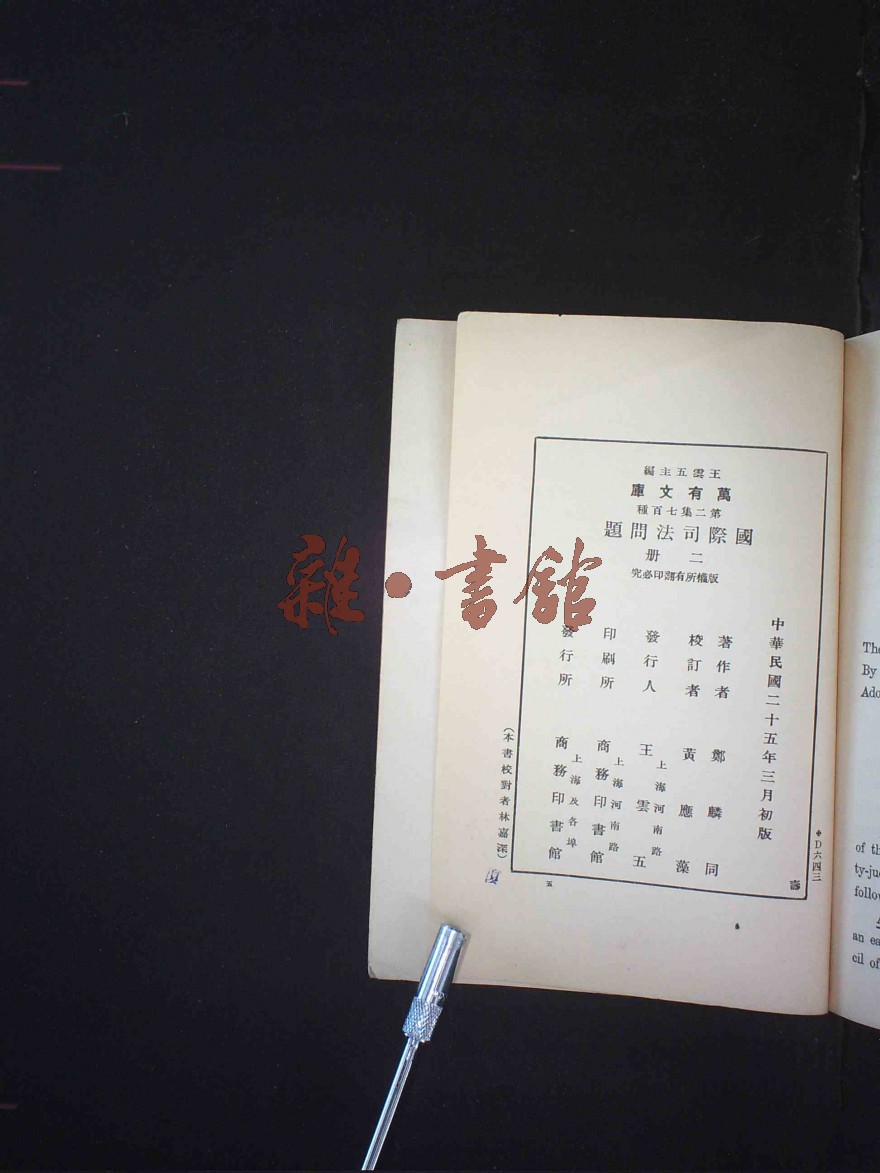 王雲五主編
萬有文庫
第二集七百種
國際司法問題
二册
版權所有翻印必究
中華民國二十五年三月初版
著作者 鄭麟同
校訂者 黃應藻
發行人 王雲五
上海河南路
印刷所 商務印書館
上海河南路
發行所 商務印書館
上海及各埠
(本書校對者林嘉深)
D六四三
五
壽
雜·書館
The
By
Ado
of th
ty-jud
follow
an ea
cil of